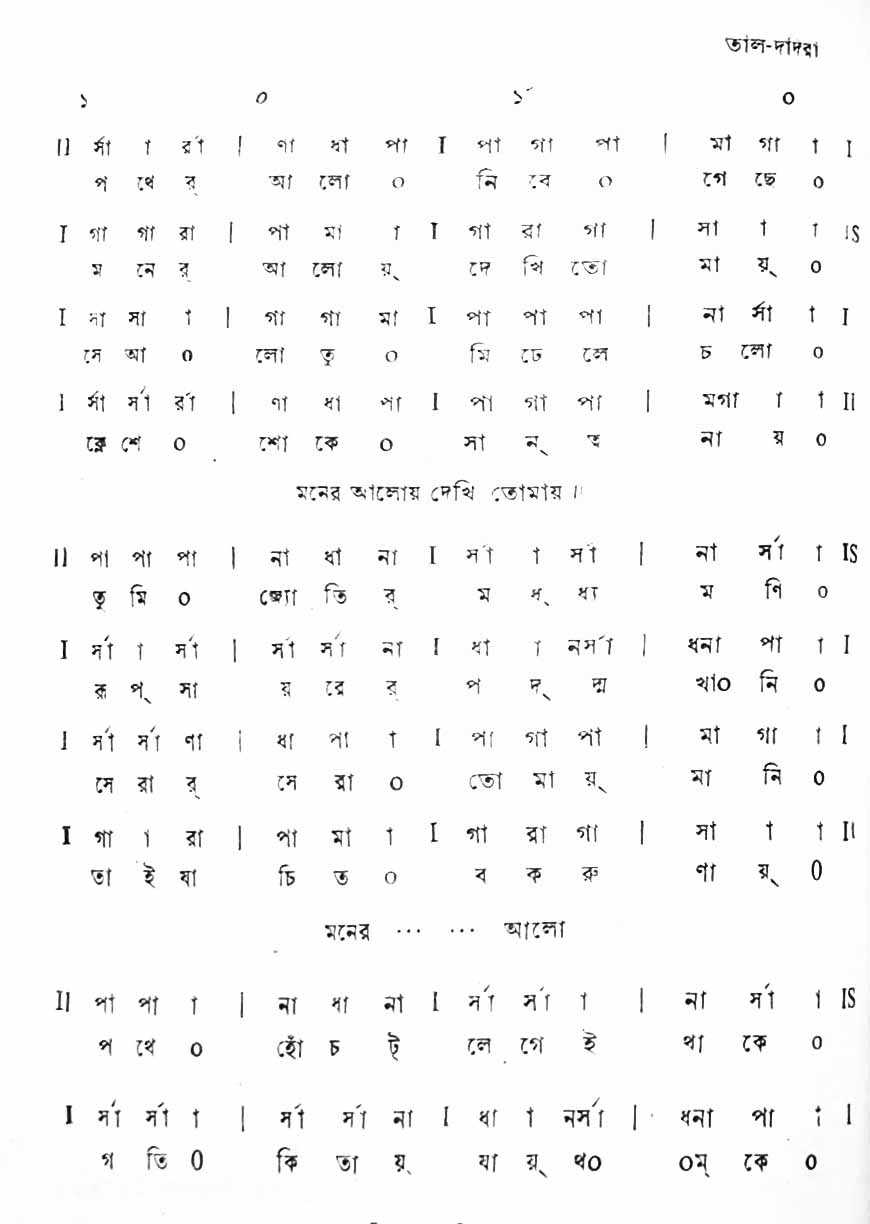 তাল-দাদরা
১ ০ ১´ ০
II র্সা া র্রা | ণা ধা পা I পা গা পা | মা গা া I
প থে র্ আ লো ০ নি বে ০ গে ছে ০
I গা গা রা | পা মা া I গা রা গা | সা া া IS
ম নে র্ আ লো য়্ দে খি তো মা য়্ ০
I সা সা া | গা গা মা I পা পা পা | না র্সা া I
সে আ ০ লো তু ০ মি ঢে লে চ লো ০
I র্সা র্সা র্রা | ণা ধা পা I পা গা পা | মগা া া II
ক্লে শে ০ শো কে ০ সা ন্ ত্ব না য় ০
মনের আলোয় দেখি তোমায়॥
II পা পা পা | না ধা না I র্সা া র্সা | না র্সা া IS
তু মি ০ জ্যো তি র্ ম ধ্ ধ্য ম ণি ০
I র্সা া র্সা | র্সা র্সা না I ধা া নর্সা | ধনা পা া I
রূ প্ সা য় রে র্ প দ্ দ্ম খা০ নি ০
I র্সা র্সা ণা | ধা পা া I পা গা পা | মা গা া I
সে রা র্ সে রা ০ তো মা য়্ মা নি ০
I গা া রা | পা মা া I গা রা গা | সা া া II
তা ই যা চি ত ০ ব ক রু ণা য়্ 0
মনের ... ... আলো
II পা পা া | না ধা না I র্সা র্সা া | না র্সা া IS
প থে ০ হোঁ চ ট্ লে গে ই থা কে ০
I র্সা র্সা া | র্সা র্সা না I ধা া নর্সা | ধনা পা া I
গ তি 0 কি তা য়্ যা য়্ থ০ ০ম্ কে ০